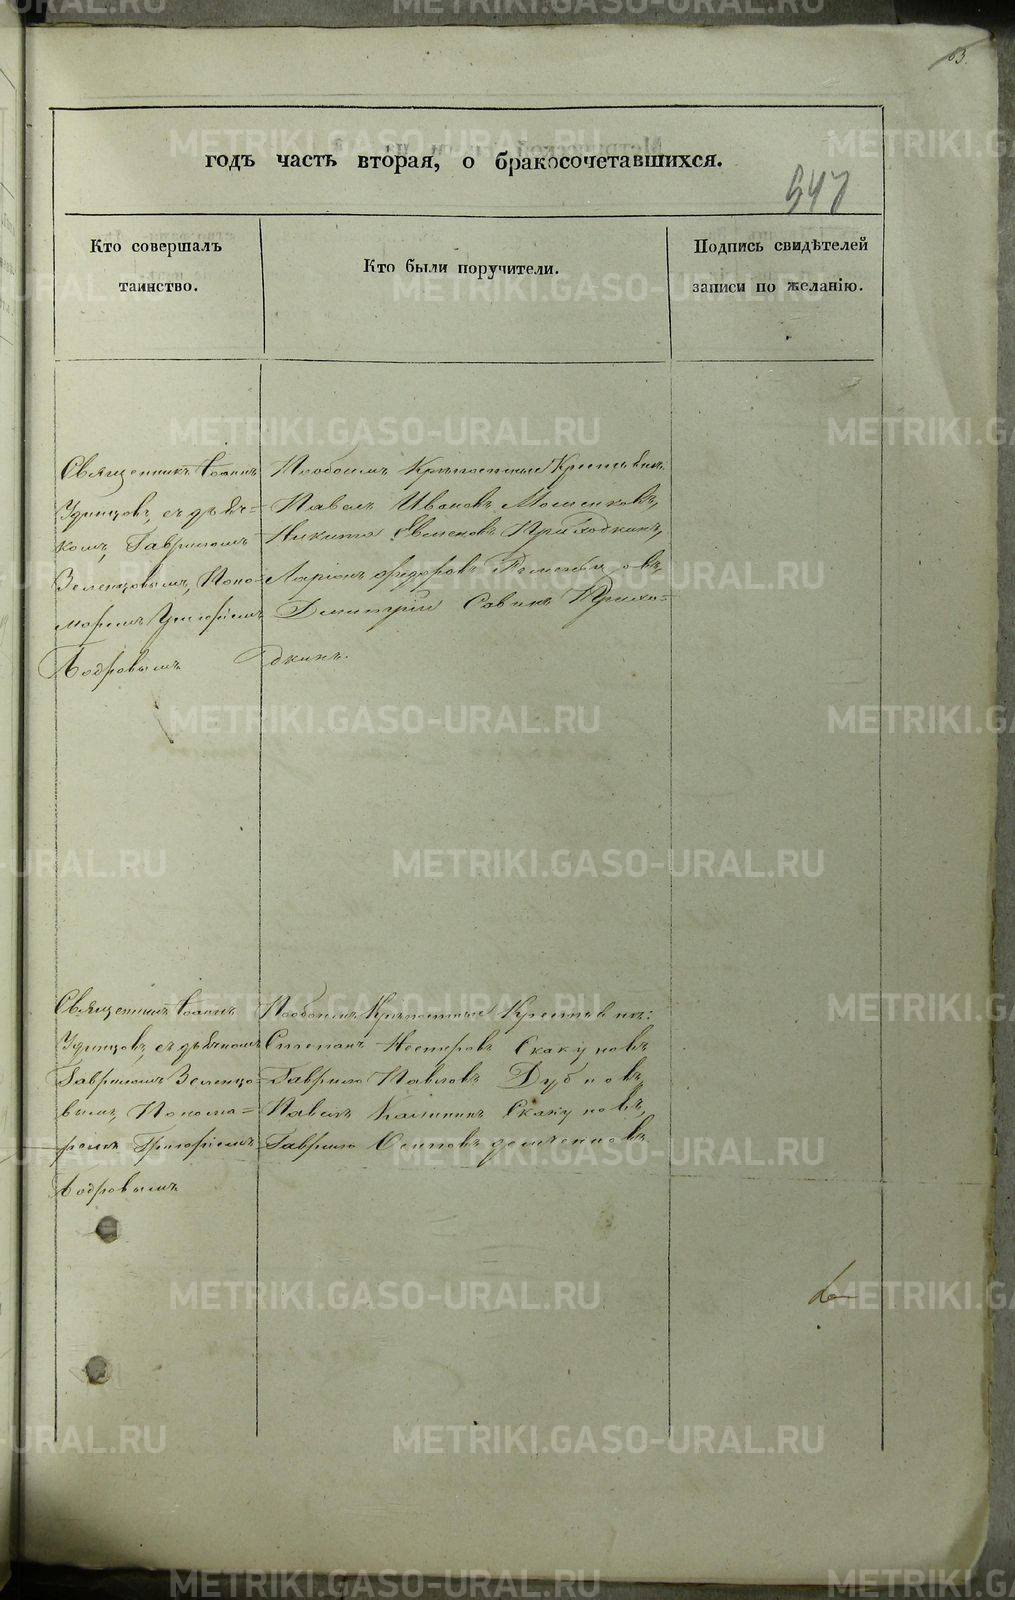 63.
годъ часть вторая, о бракосочетавшихся.
547
Кто совершалъ
таинство.
Кто были поручители.
Подпись свидѣтелей
записи по желанію.
Священникъ Іоаннъ
Удинцовъ, съ дьяч-
комъ, Гавриломъ
Зеленцовымъ, Поно-
маремъ Григоріемъ
Лодровымъ
Пообоимъ Крѣпостные Крестьяне
Павелъ Ивановъ Мошенковъ,
Никита Приходкинъ,
Ларіонъ Федоровъ
Димитрій Савинъ Прихо-
дкинъ.
Священникъ Іоаннъ
Удинцовъ, съ дьячкомъ
Гавриломъ Зеленцо-
вымъ, Понома-
ремъ Григоріемъ
Лодровымъ
Пообоимъ Крѣпостные Крестьяне:
Степанъ Нестеровъ Скакуновъ
Гаврило Павловъ Дубновъ,
Павелъ Калининъ Скакуновъ,
Гаврило Осиповъ
METRIKI.GASO-URAL.RU